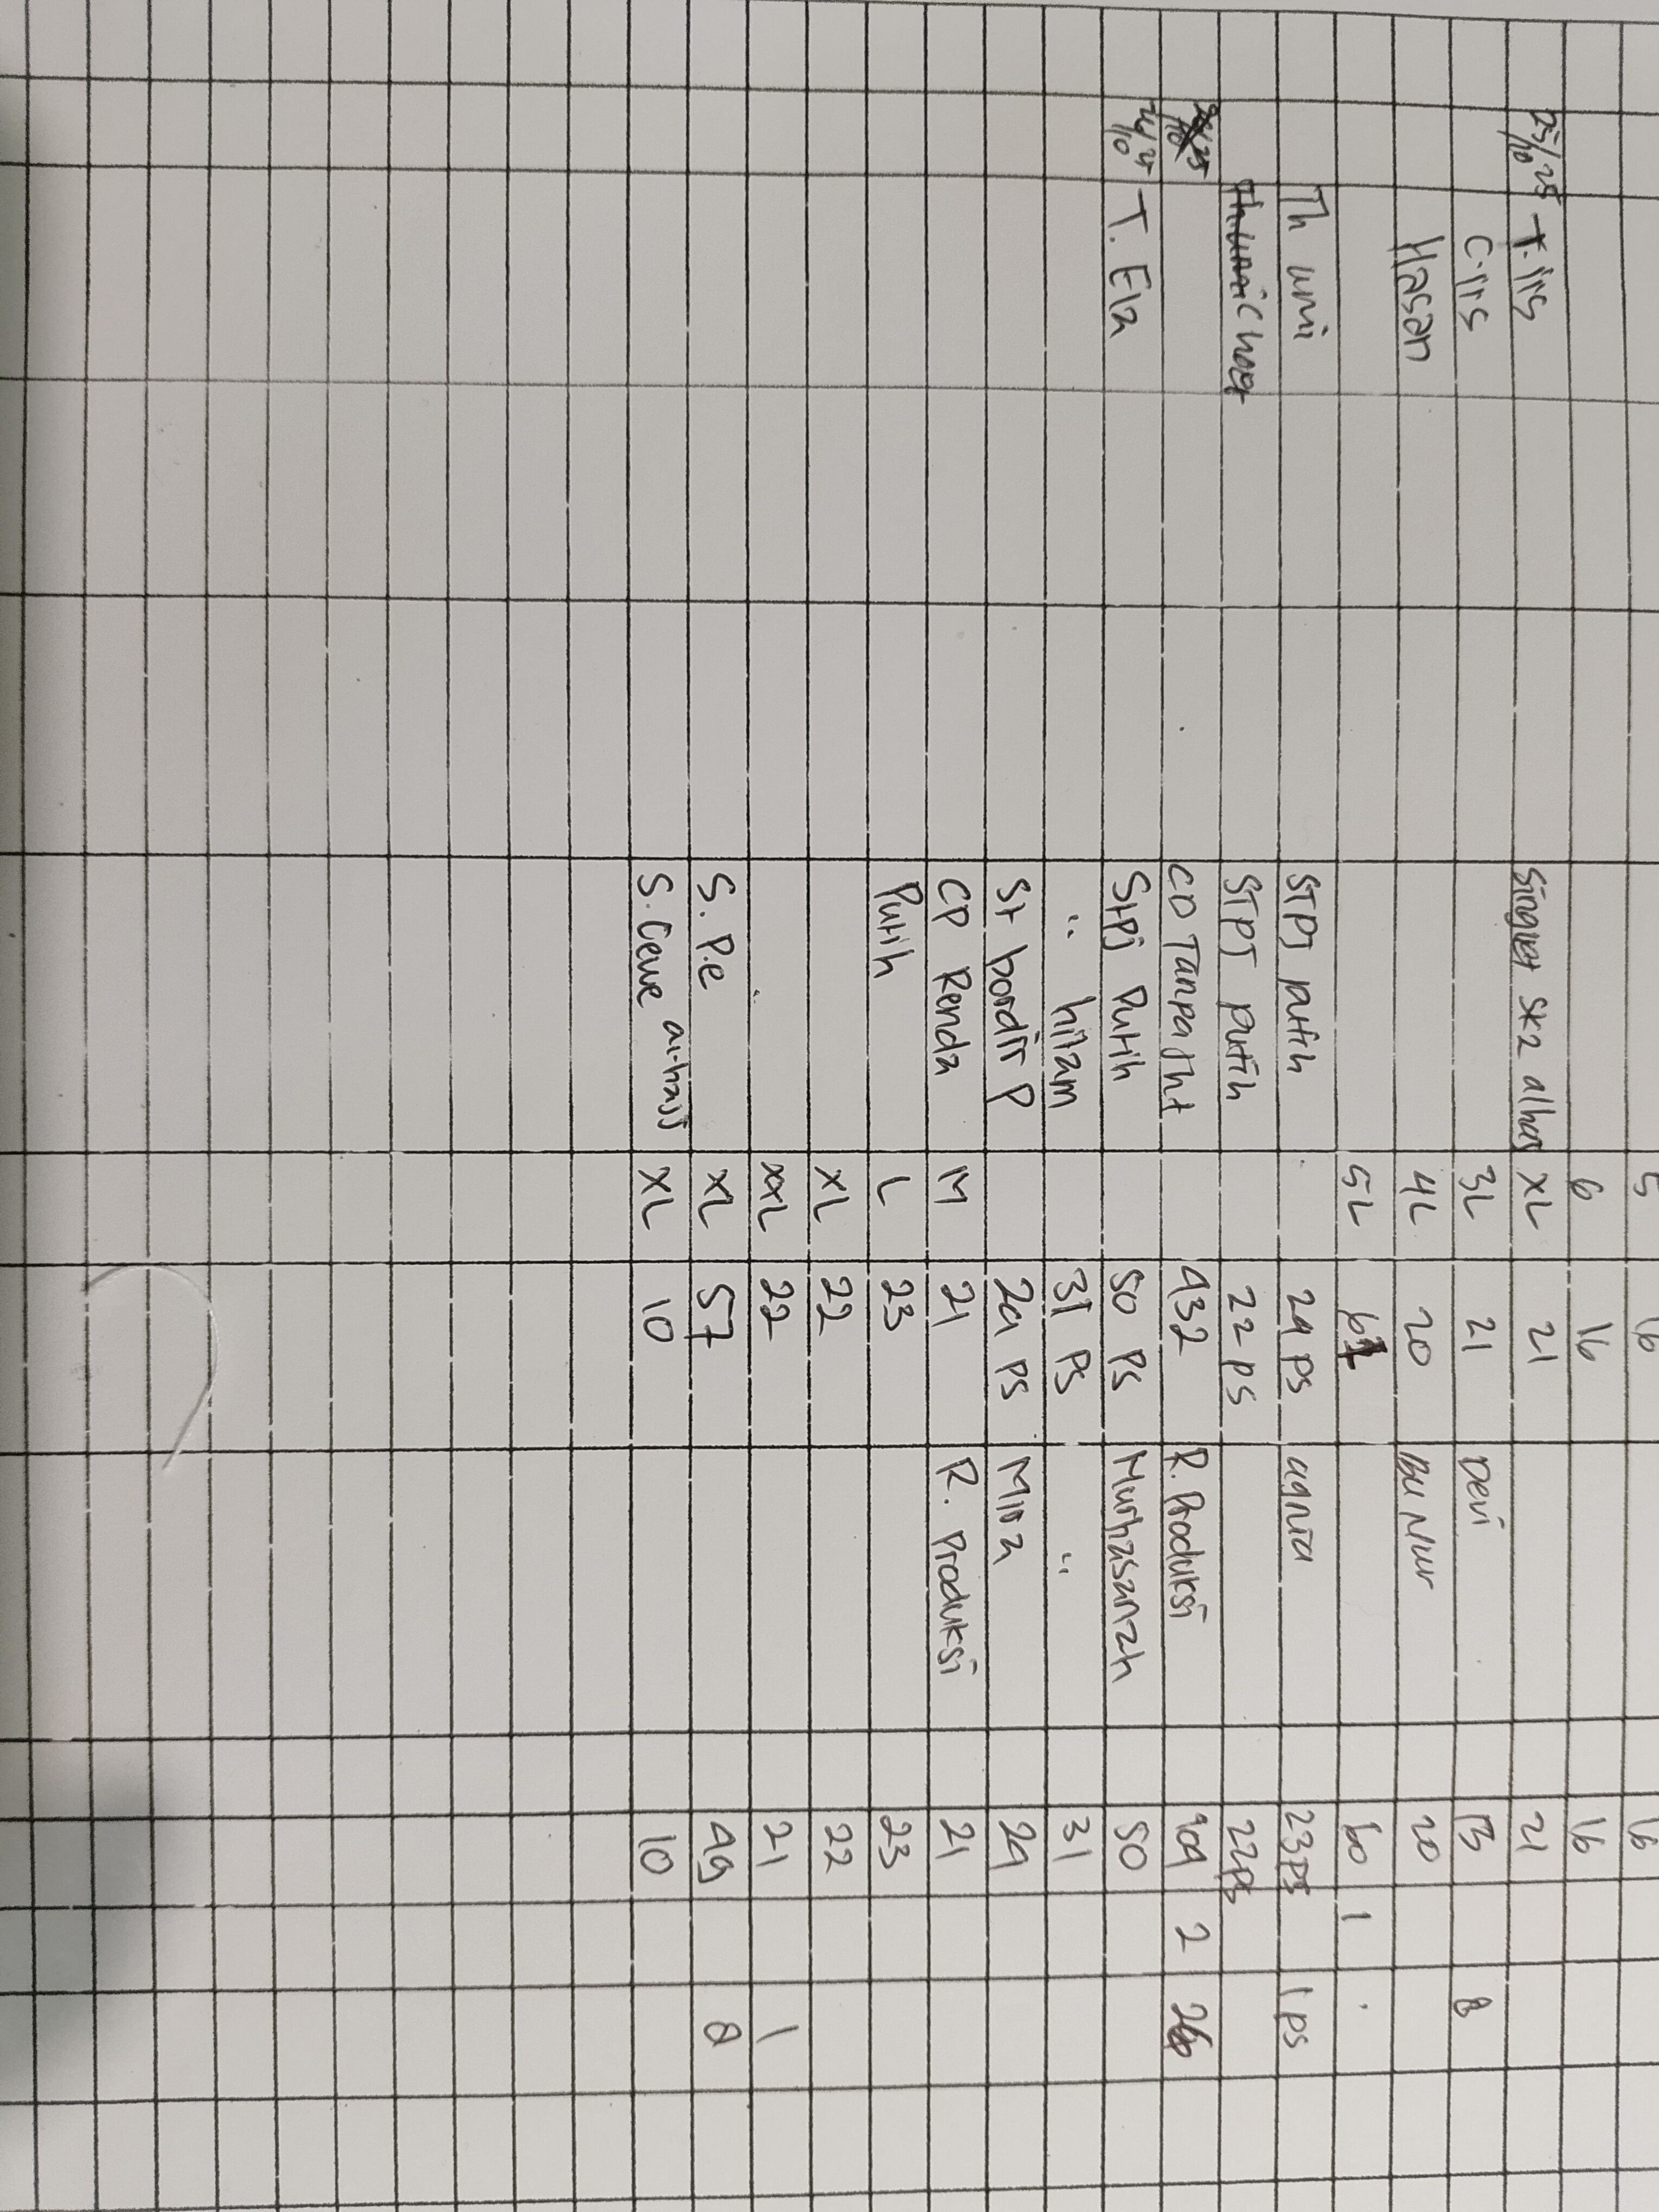 5 16 16
6 16 16
25/10 25 T. iis Singlet SK2 alhas XL 21 21
C. iis 3L 21 Devi 13 8
Hasan 4L 20 Bu Nur 20
5L 61 60 1
Th umi STPJ putih 24 ps agnia 23 PS 1 ps
STPJ putih 22 ps 22 PS
CD Tanpa Jht 432 R. Produksi 404 2 26
24/10 25 T. Ela Stpj Putih 50 Ps Nurhasanah 50
" hitam 31 Ps " 31
St bordir P 24 PS Mira 24
CP Renda M 21 R. Produksi 21
Putih L 23 23
XL 22 22
XXL 22 21 1
S. P.e XL 57 49 8
S. Cewe XL 10 10